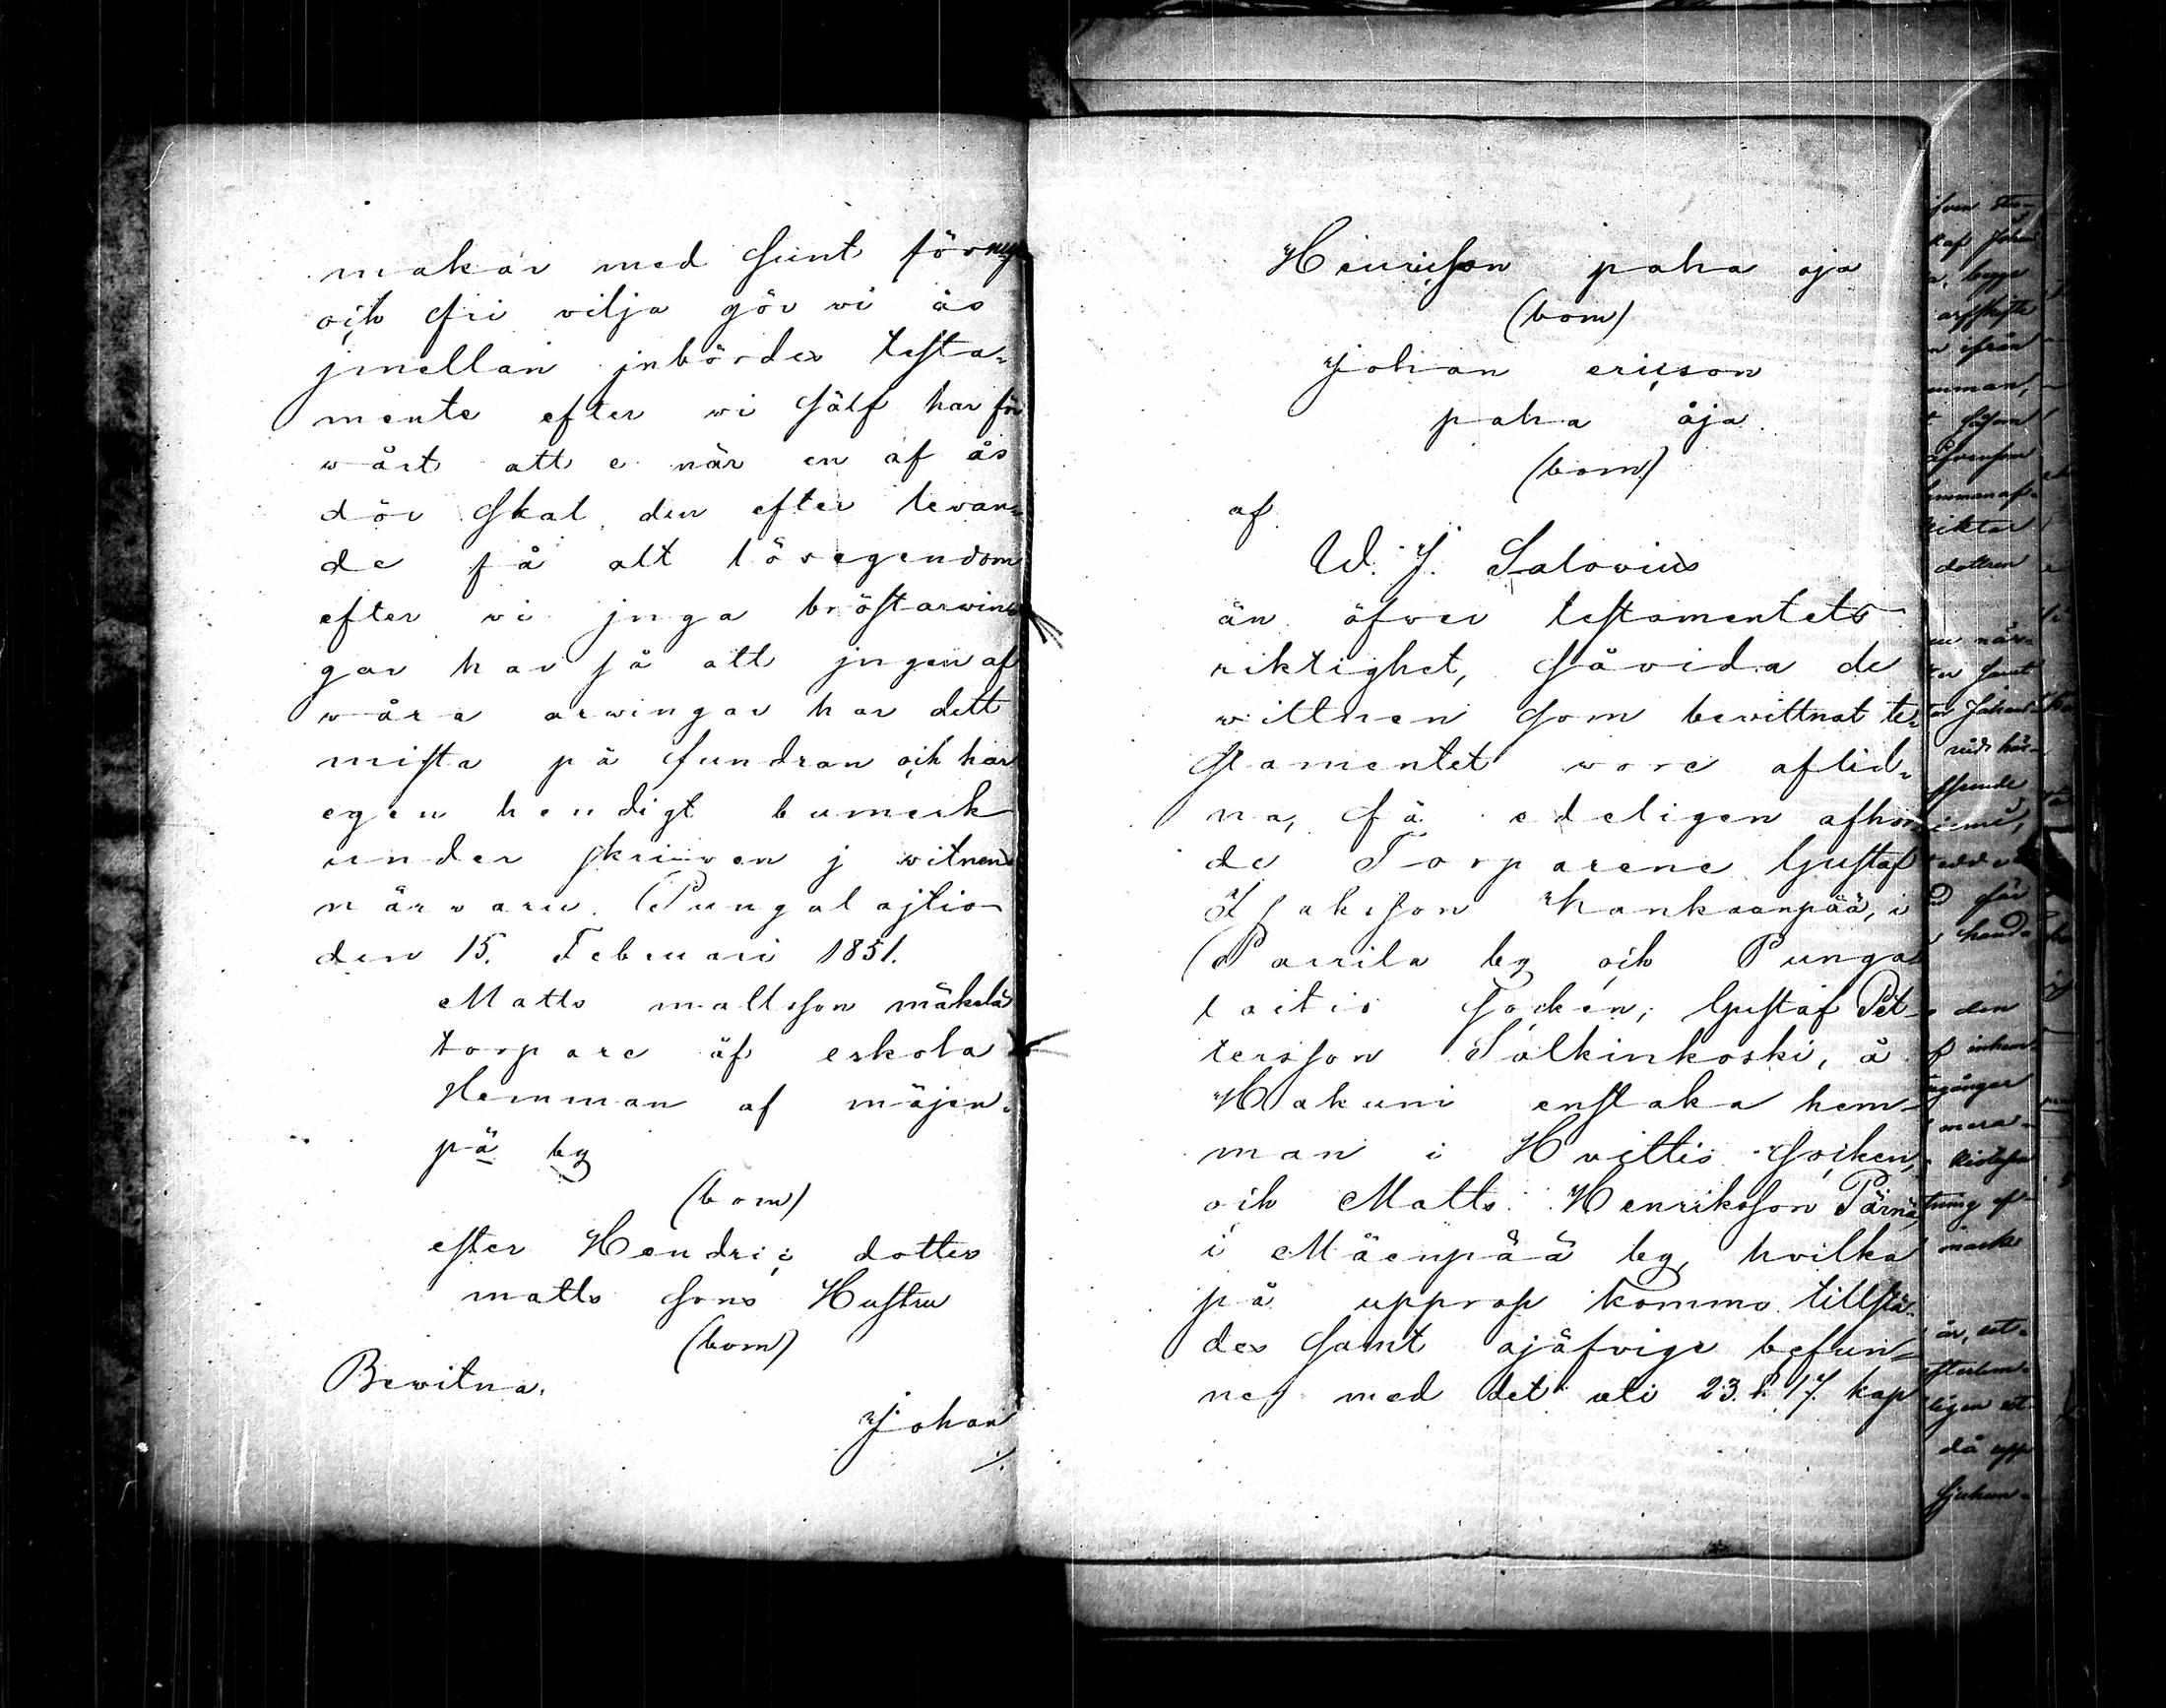 makar med sunt förnuf
och fri vilja gör wi ås
jmellan jnbördes testa-
mente efter wi sälf har för
wårt att e når en af ås
dör skal den efter levan-
de få alt lösegendom
efter wi jnga bröstarwin-
gar har så att jngen af
wåra arwingar har dett
mista på fundran och har
egen hendigt bumerk
under skriwen j witnens
närwaru. Pungalajtio
den 15. Februari 1851.
Matts mattsson mäkelä
torpare af eskola
Hemman af mäjen-
pä by
(bom)
efter Hendric dotter
matts sons Hustru
(bom)
Bewitna.
Johan
./.
Henricson paha oja
(bom)
Johan ericson
paha åja.
(bom)
af
W. J. Salovius
än öfver testamentets
riktighet, såvida de
wittnen som bevittnat te-
stamentet vore aflid-
na, få edeligen afhör
de Torparene Gustaf
Isaksson Kankaanpää, i
Parrila by och Punga
laitio socken, Gustaf Pet-
tersson Talkinkoski, å
Hakuni enstaka hem-
man i Hvittis socken,
och Matts Henriksson Pärnä,
i Mäenpää by, hvilka
på upprop kommo tillstä-
des samt ojäfvige befun-
nes med det uti 23. § 17. kap